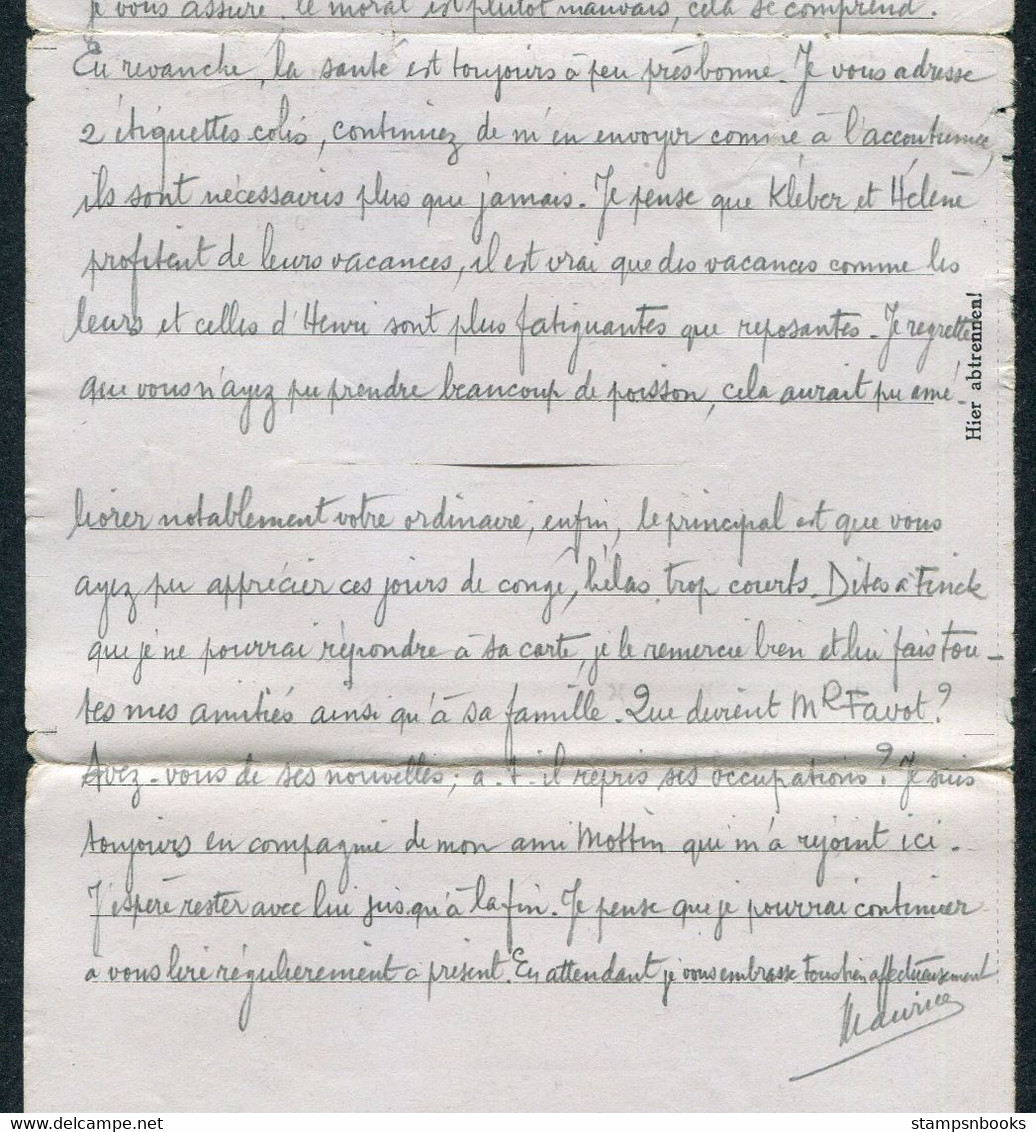 je vous assure. le moral est plutôt mauvais, cela se comprend.
En revanche, la santé est toujours à peu près bonne. Je vous adresse
2 étiquettes colis, continuez de m'en envoyer comme à l'accoutumée,
ils sont nécessaires plus que jamais. Je pense que Kléber et Hélène
profitent de leurs vacances, il est vrai que des vacances comme les
leurs et celles d'Henri sont plus fatiguantes que reposantes. Je regrette
que vous n'ayez pu prendre beaucoup de poisson, cela aurait pu amé-
Hier abtrennen!
liorer notablement votre ordinaire, enfin, le principal est que vous
ayez pu apprécier ces jours de congé, hélas trop courts. Dites à Finck
que je ne pourrai répondre à sa carte, je le remercie bien et lui fais tou-
tes mes amitiés ainsi qu'à sa famille. Que devient MR Favot?
Avez-vous de ses nouvelles; a-t-il repris ses occupations? Je suis
toujours en compagnie de mon ami Mottin qui m'a rejoint ici.
J'espère rester avec lui jusqu'à la fin. Je pense que je pourrai continuer
à vous lire régulièrement à présent. En attendant je vous embrasse tous bien affectueusement
Maurice
stampsnbooks